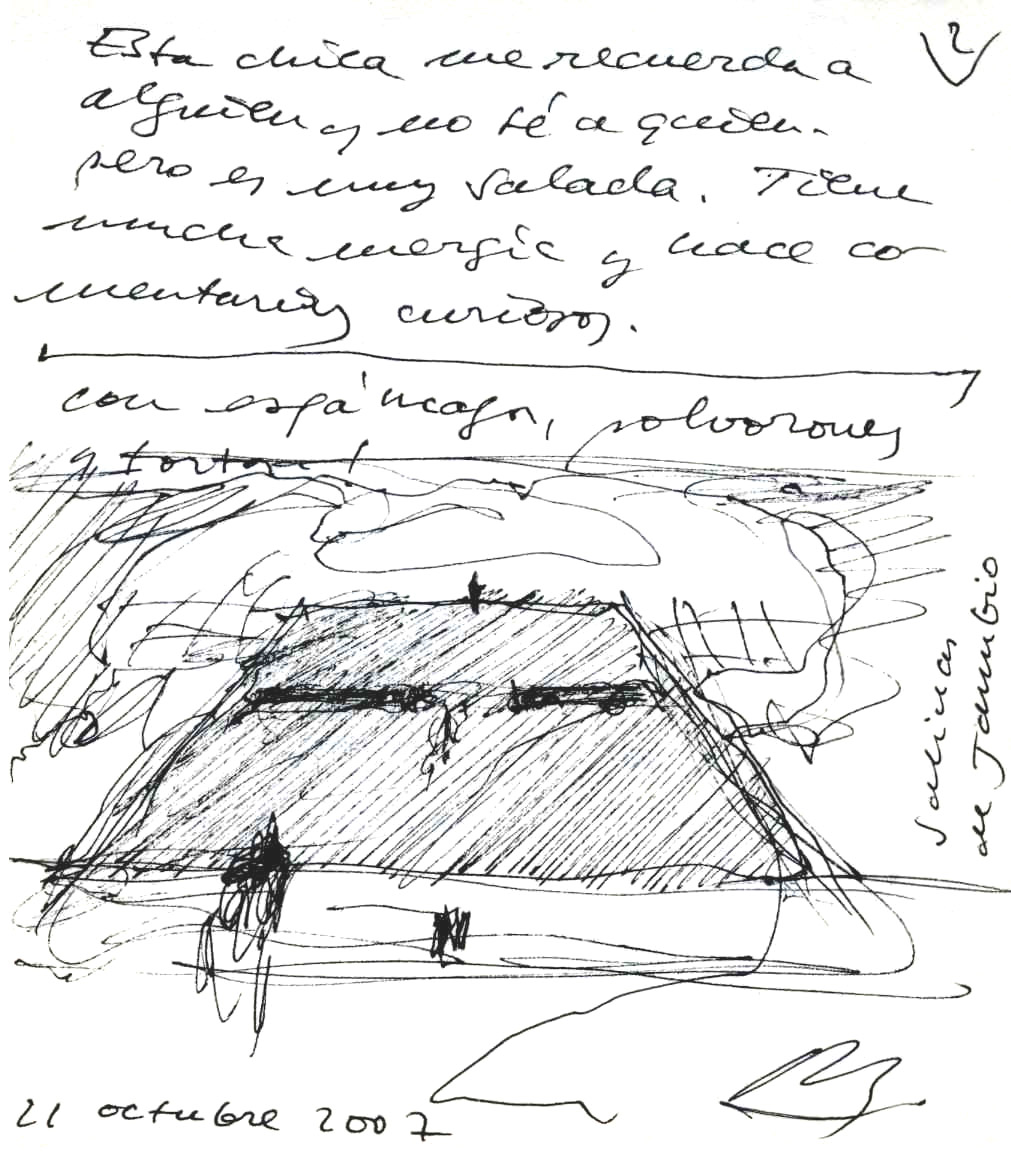 2
Esta chica me recuerda a
alguien y no sé a quien.
pero es muy salada. Tiene
mucha energia y hace co
mentarios curiosos.
con espárragos, polvorones
y tortora!
Salinas
de Jammbio
21 octubre 2007